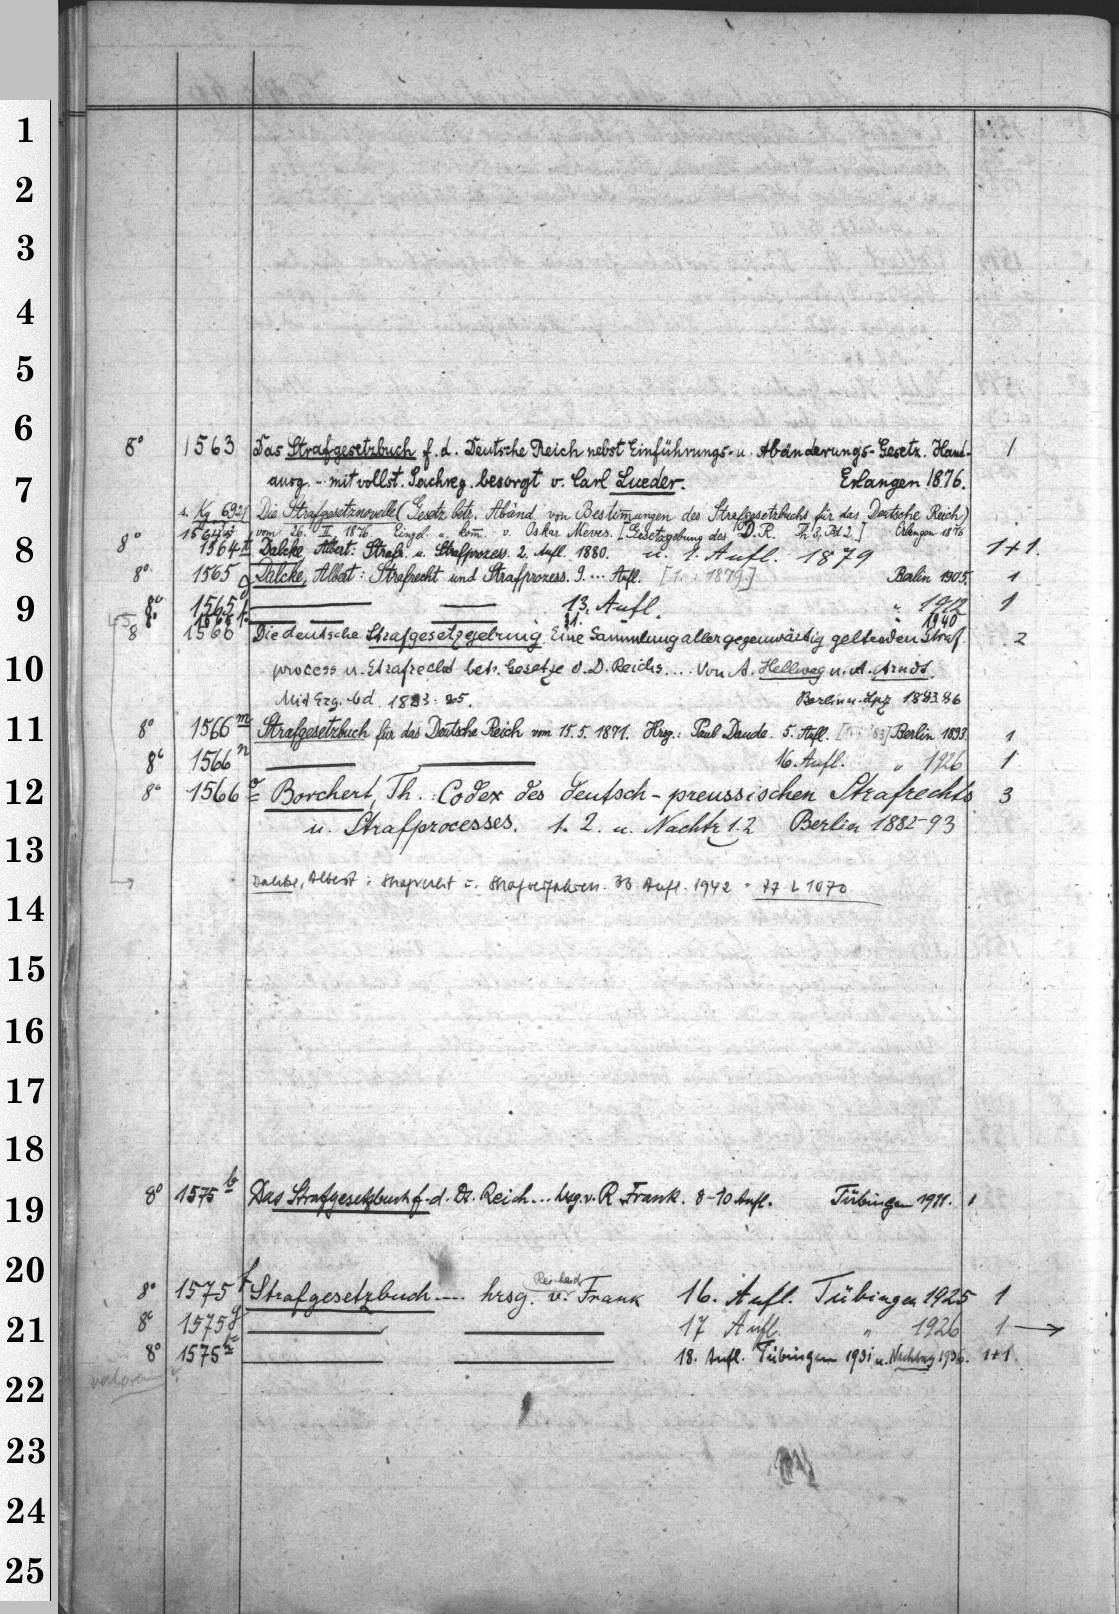 1
2
3
4
5
6
8° 1563 Das Strafgesetzbuch f. d. Deutsche Reich nebst Einführungs- u. Abänderungs-Gesetz. Hand- 1
7
ausg. - mit vollst. Sachreg. besorgt v. Carl Lueder. Erlangen 1876.
s. Kg 692 Die Strafgesetznovelle (Gesetz betr. Abänd. von Bestimungen des Strafgesetzbuchs für das Deutsche Reich)
vom 26. II. 1876. Einzel u. kom. v. Oskar Meves. [Gesetzgebung des D. R. Th 3, Bd 2.] Erlangen 1876
8
8° 1564 Dalcke Albert: Strafr. u. Strafprozess. 2. Aufl. 1880. u. 1. Aufl. 1879 1+1.
8° 1565 g Dalcke, Albert: Strafrecht und Strafprozess. 9. ... Aufl. [1.: 1879.] Berlin 1905. 1
9
8° 1565 13. Aufl. " 1912 1
31. " 1940
8 1566 Die deutsche Strafgesetzgebung. Eine Sammlung aller gegenwärtig geltenden Straf- 2
10
process u. Strafrecht betr. Gesetze d. D. Reichs... Von A. Hellweg u. A. Arndt.
Mit Erg. bd. 1883. 85. Berlin u. Lpz 1883.86
11
8° 1566 m Strafgesetzbuch für das Deutsche Reich vom 15. 5. 1871. Hrsg.: Paul Daude. 5. Aufl. Berlin 1893 1
8° 1566 n 16. Aufl. " 1926 1
12
8° 1566 o Borchert, Th.: Codex des deutsch-preussischen Strafrechts 3
u. Strafprocesses. 1. 2. u. Nachtr. 1. 2 Berlin 1882-93
13
Dalcke, Albert: Strafrecht u. Strafverfahren. 33 Aufl. 1942 = 77 L 1070
14
15
16
17
18
19
8° 1575 b Das Strafgesetzbuch f. d. Dt. Reich... hsg. v. R. Frank. 8-10 Aufl. Tübingen 1911. 1
20
8° 1575 f Strafgesetzbuch .... hrsg. v. Reinhard Frank 16. Aufl. Tübingen 1925 1
21
8° 1575 g 17 Aufl. " 1926 1
8° 1575 h 18. Aufl. Tübingen 1931 u. Nachtrag 1936. 1+1
22
23
24
25